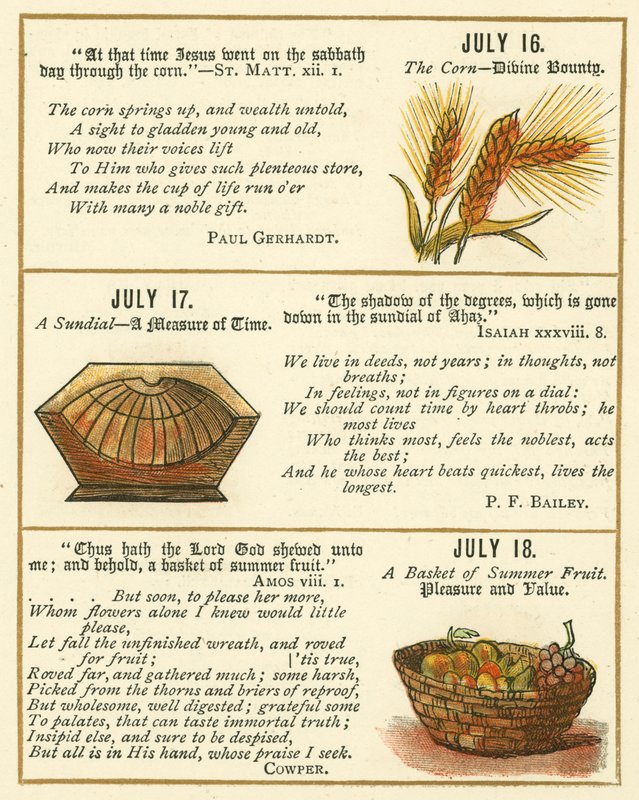 "At that time Jesus went on the sabbath
day through the corn."—ST. MATT. xii. 1.
The corn springs up, and wealth untold,
A sight to gladden young and old,
Who now their voices lift
To Him who gives such plenteous store,
And makes the cup of life run o'er
With many a noble gift.
PAUL GERHARDT.
JULY 16.
The Corn—Divine Bounty.
JULY 17.
A Sundial—A Measure of Time.
"The shadow of the degrees, which is gone
down in the sundial of Ahaz."
ISAIAH xxxviii. 8.
We live in deeds, not years; in thoughts, not
breaths;
In feelings, not in figures on a dial:
We should count time by heart throbs; he
most lives
Who thinks most, feels the noblest, acts
the best;
And he whose heart beats quickest, lives the
longest.
P. F. BAILEY.
"Thus hath the Lord God shewed unto
me; and behold, a basket of summer fruit."
AMOS viii. 1.
. . . . But soon, to please her more,
Whom flowers alone I knew would little
please,
Let fall the unfinished wreath, and roved
for fruit; ['tis true,
Roved far, and gathered much; some harsh,
Picked from the thorns and briers of reproof,
But wholesome, well digested; grateful some
To palates, that can taste immortal truth;
Insipid else, and sure to be despised,
But all is in His hand, whose praise I seek.
COWPER.
JULY 18.
A Basket of Summer Fruit.
Pleasure and Value.